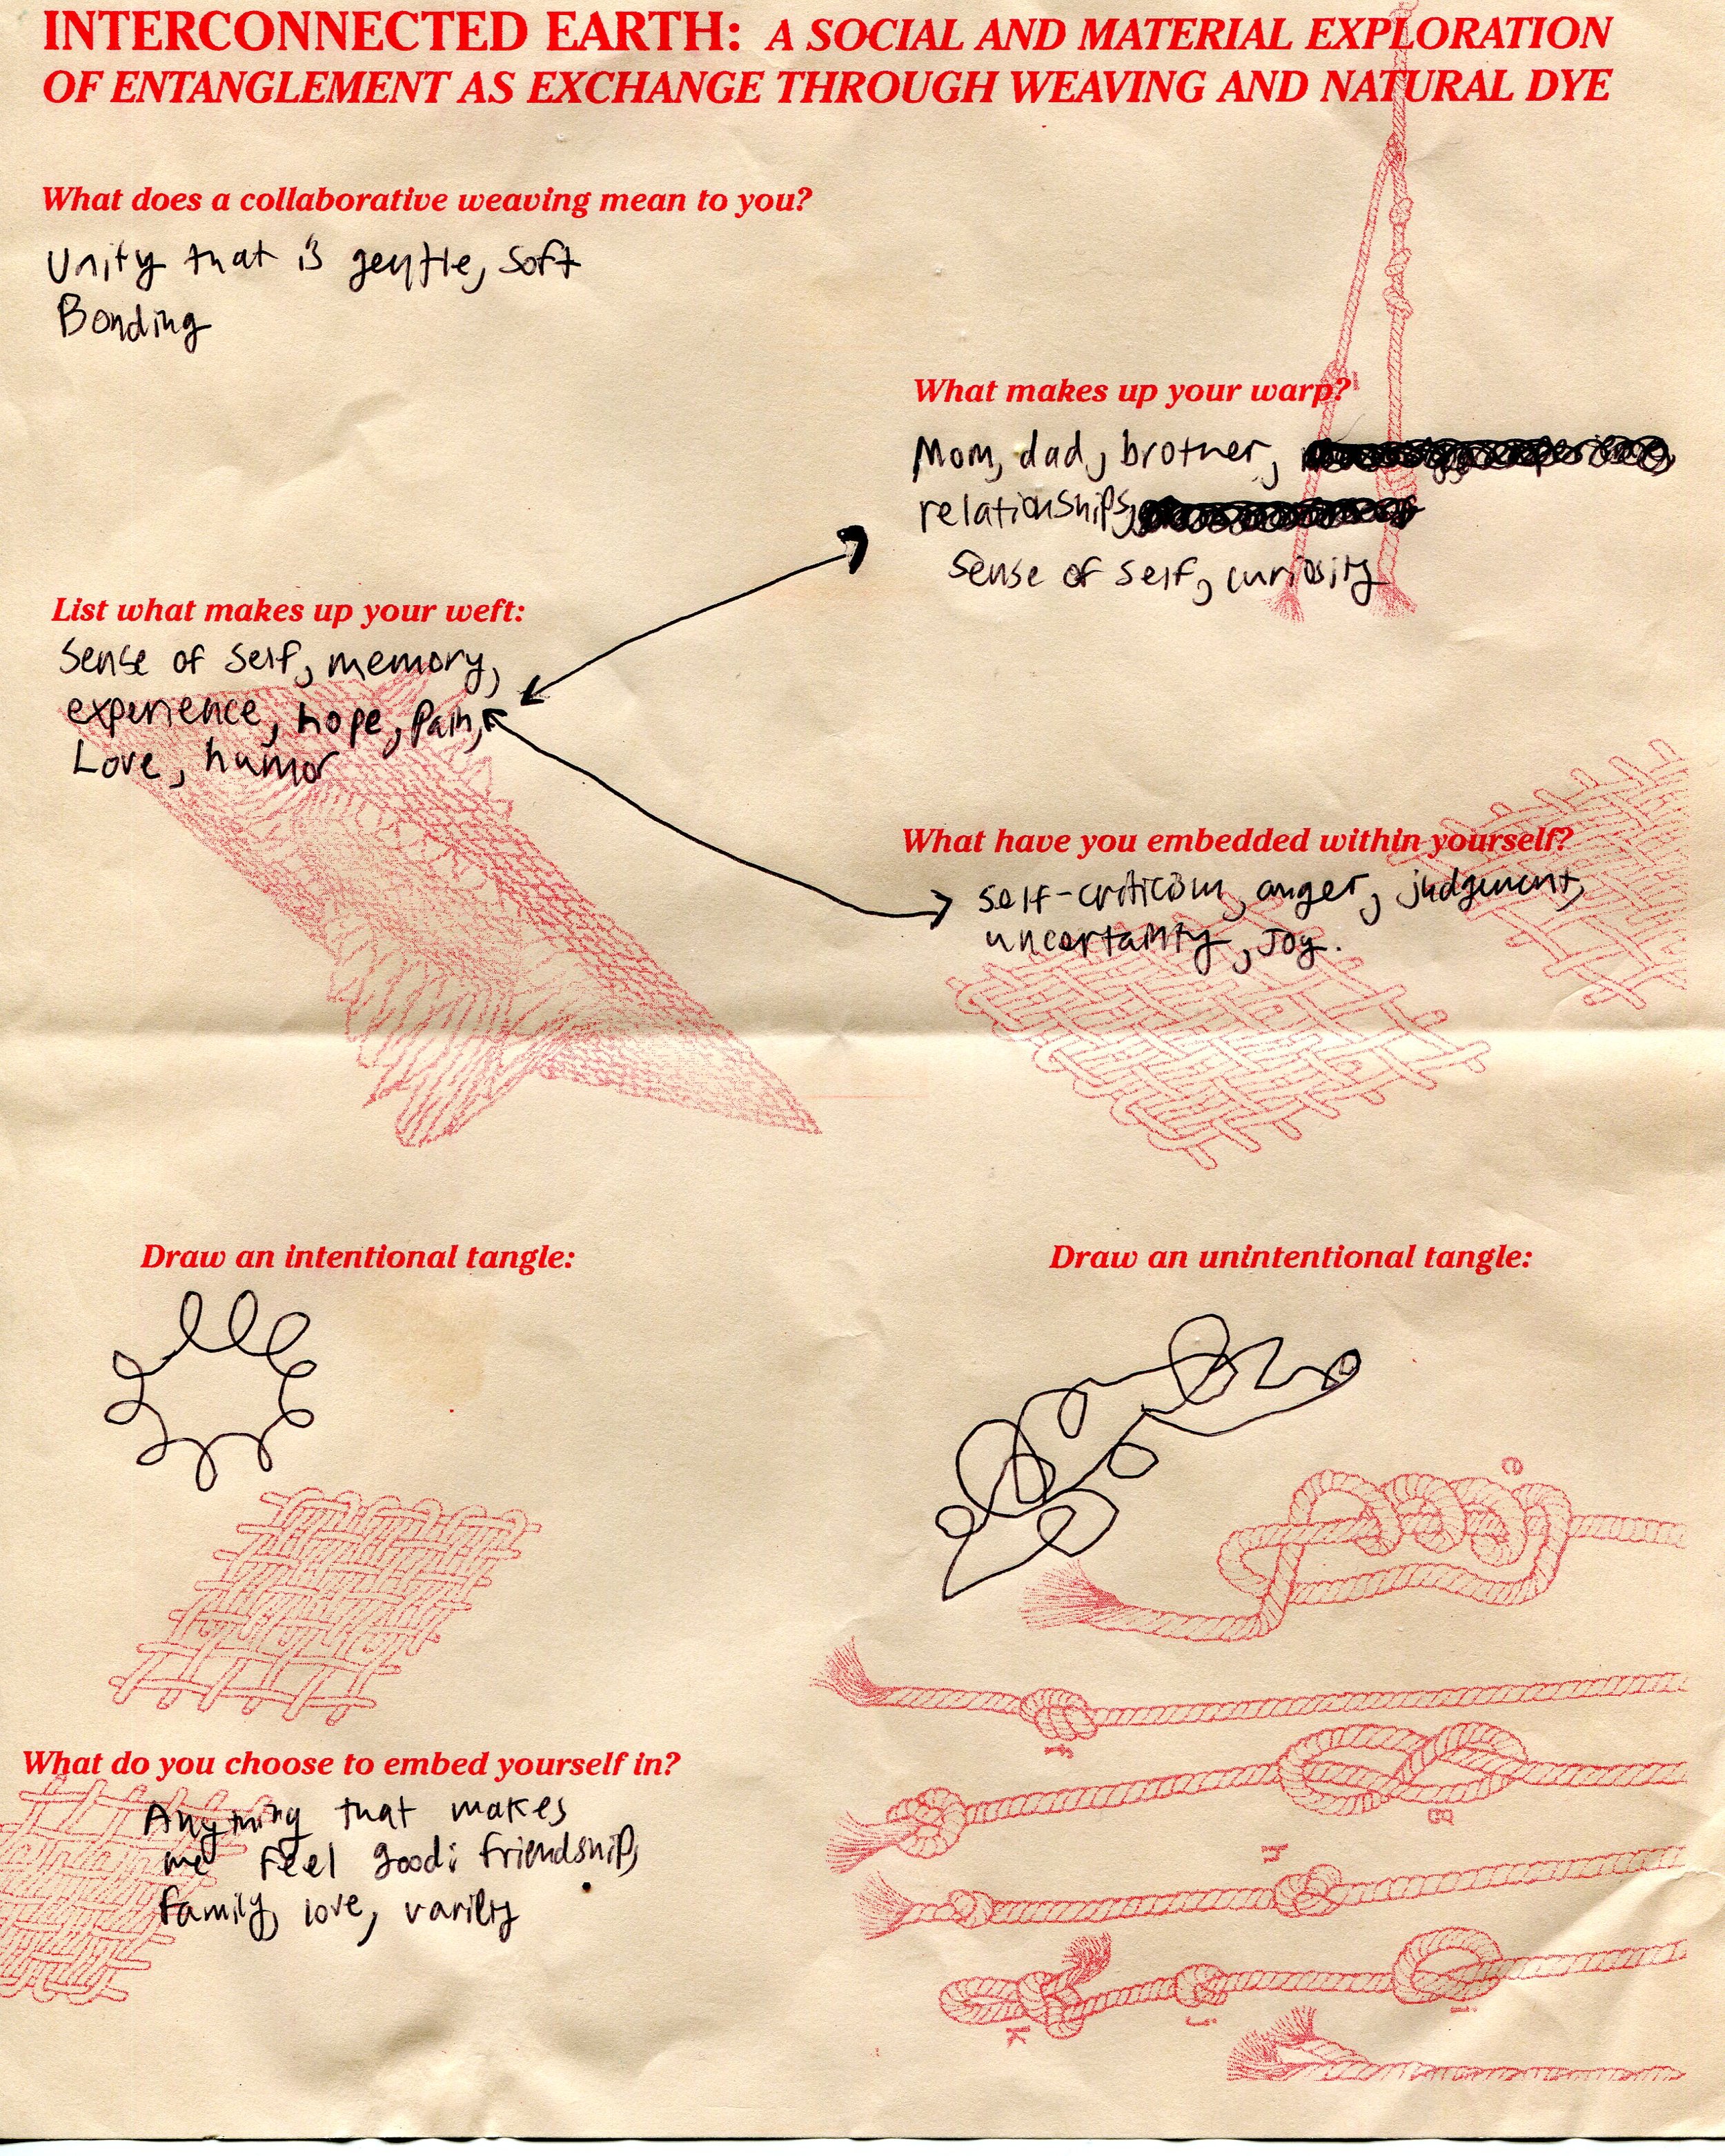 INTERCONNECTED EARTH: A SOCIAL AND MATERIAL EXPLORATION
OF ENTANGLEMENT AS EXCHANGE THROUGH WEAVING AND NATURAL DYE
What does a collaborative weaving mean to you?
Unity that is gentle, soft
Bonding
What makes up your warp?
Mom, dad, brother,
relationships,
Sense of self, curiosity
List what makes up your weft:
Sense of self, memory,
experience, hope, Pain,
Love, humor
What have you embedded within yourself?
self-criticism, anger, judgement,
uncertainty, Joy.
Draw an intentional tangle:
Draw an unintentional tangle:
e
f
g
h
i
j
k
What do you choose to embed yourself in?
Anything that makes
me feel good: friendship,
family, love,